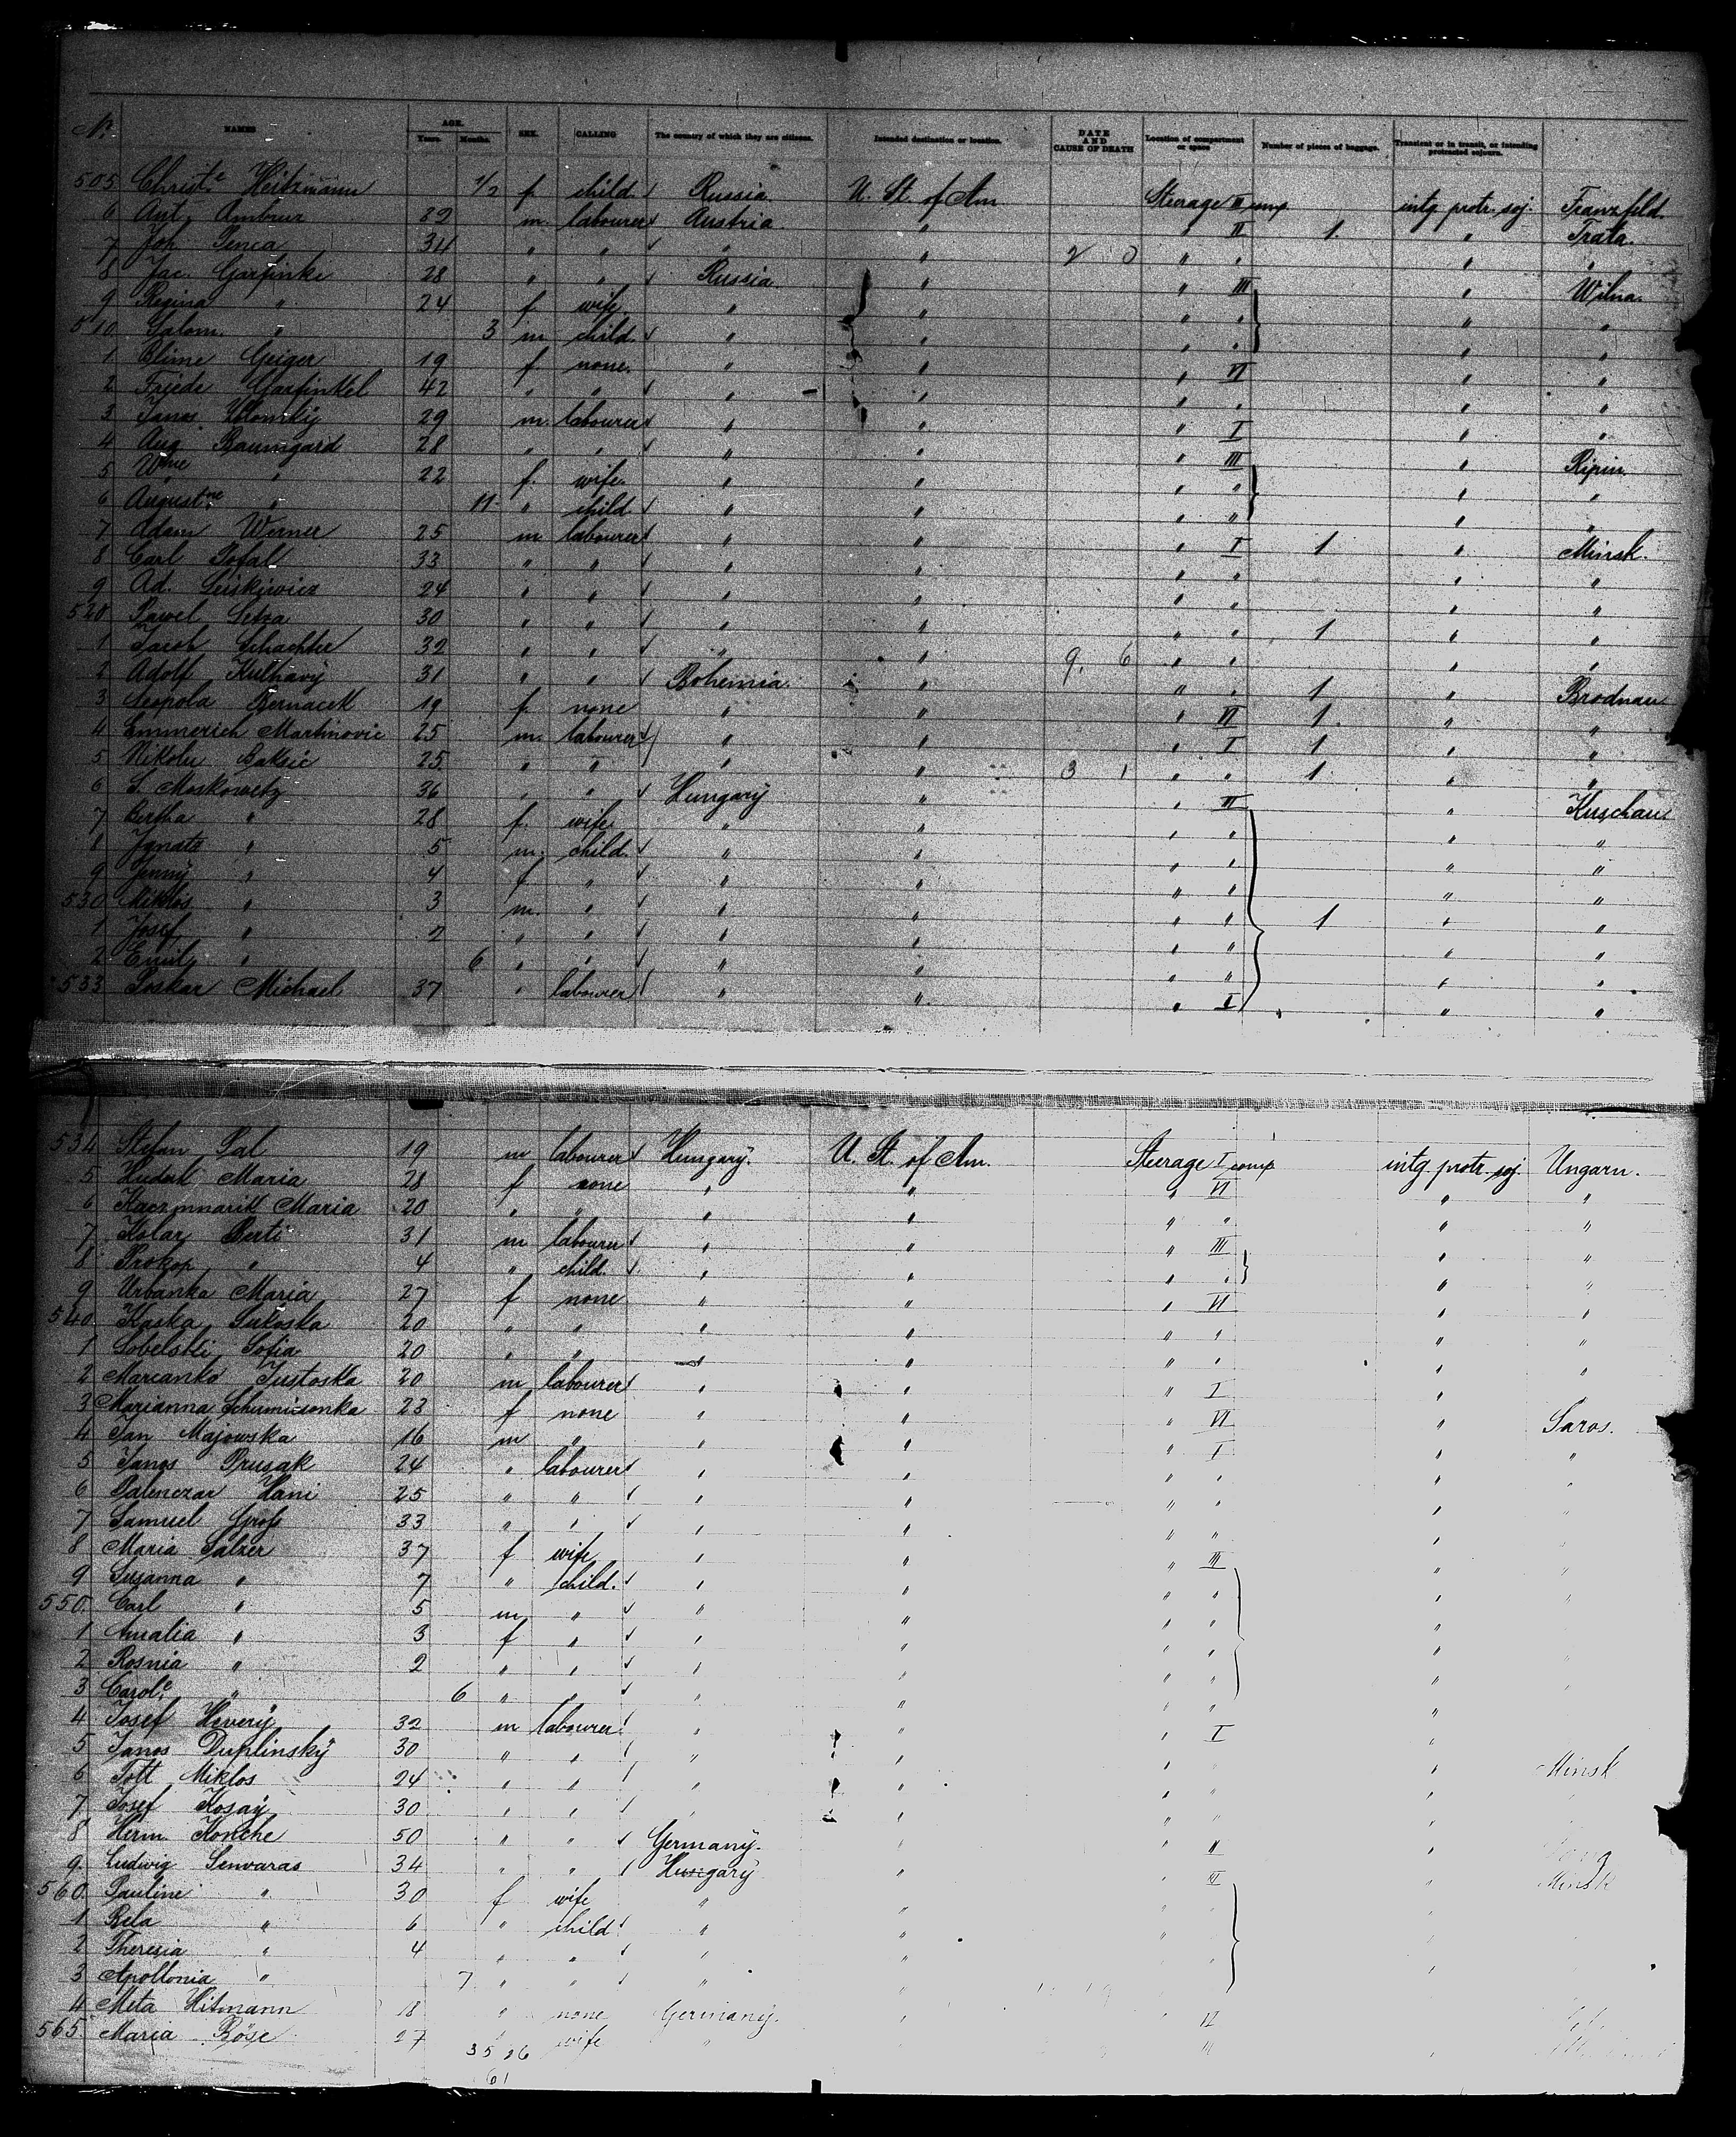 No. NAMES AGE. Years. Months. SEX. CALLING The country of which they are citizens. Intended destination or location. DATE AND CAUSE OF DEATH Location of compartment or space Number of pieces of baggage. Transient or in transit, or intending protracted sojourn.
505 Christe Heitzmann 1/2 f child Russia U. St. of Am Steerage III comp intg protr. soj. Franzfeld.
6 Ant. Ambruz 32 m. labourer Austria " " II 1 " Trata.
7 Joh. Penca 34 " " " " " " "
8 Jac. Garfinke 28 " " Russia " " III " Wilna.
9 Regina " 24 f wife " " " " " "
510 Salom. " 3 m child " " " " " "
1 Blime Geiger 19 f none. " " " VI " "
2 Friede Garfinkel 42 " " " " " " " "
3 Janos 29 m labourer " " " I " "
4 Aug. Baumgard 28 " " " " " III " Ripin
5 Wme " 22 f. wife " " " " " "
6 Augustne " 11 " child " " " " " "
7 Adam Werner 25 m labourer " " " I 1 " Minsk.
8 Carl 33 " " " " " " " "
9 Ad. Leiskiwicz 24 " " " " " " " "
520 Pawel Setza 30 " " " " " " 1 " "
1 Jacob Schachter 32 " " " " " " " "
2 Adolf Kulhavy 31 " " Bohemia. " " " 1 " Brodnau
3 Leopola Bernacek 19 f none " " " VI 1. " "
4 Emmerich Martinovic 25 m. labourer " " " I 1 " "
5 Nikola Baksic 25 " " " " 3 1 " " 1 " "
6 S. Moskowetz 36 " " Hungary " " III " Kuschau
7 Bertha " 28 f. wife " " " " " "
8 Ignatz " 5 m. child " " " " " "
9 Jenny " 4 f " " " " " " "
530 Miklos " 3 m. " " " " " 1 " "
1 Josef " 2 " " " " " " " "
2 Emil " 6 " " " " " " " "
533 Poskar Michael 37 " labourer " " " I " "
534 Stefan Pal 19 m labourer Hungary. U. St. of Am. Steerage I comp intg protr. soj. Ungarn.
5 Hudak Maria 28 f none " " " VI " "
6 Kaczmnarik Maria 20 " " " " " " " "
7 Kolar Berti 31 m labourer " " " III " "
8 Prokop " 4 " child. " " " " " "
9 Urbanka Maria 27 f none " " " VI " "
540 Kaska Sukoska 20 " " " " " " " "
1 Sobelski Sofia 20 " " " " " " " "
2 Marianko Justoska 20 m labourer " " " I "
3 Marianna Schumisonka 23 f none " " " VI " Saros.
4 Jan Majowska 16 m " " " " I " "
5 Janos Prusak 24 " labourer " " " " " "
6 Palenczar Hani 25 " " " " " " "
7 Samuel Gross 33 " " " " " " "
8 Maria Salzer 37 f wife " " " III "
9 Susanna " 7 " child. " " " " "
550. Carl " 5 m " " " " " "
1 Amalia " 3 f " " " " " "
2 Rosnia " 2 " " " " " " "
3 Carole " 6 " " " " " " "
4 Josef Hevery 32 m labourer " " " I "
5 Janos Duplinsky 30 " " " " " " " Minsk
6 Tott Miklos 24 " " " " " " "
7 Josef Kosay 30 " " " " " "
8 Herm. Konche 50 " " Germany. " " II "
9. Ludwig Senvaras 34 " " Hungary " III " Minsk
560. Pauline " 30 f wife " "
1 Bela " 6 " child " "
2 Theresia " 4 " " " "
3 Apollonia " 7 " " " "
4 Meta Hitmann 18 " none Germany. " " VI
565 Maria Böse 27 " wife " " III
35 26
61